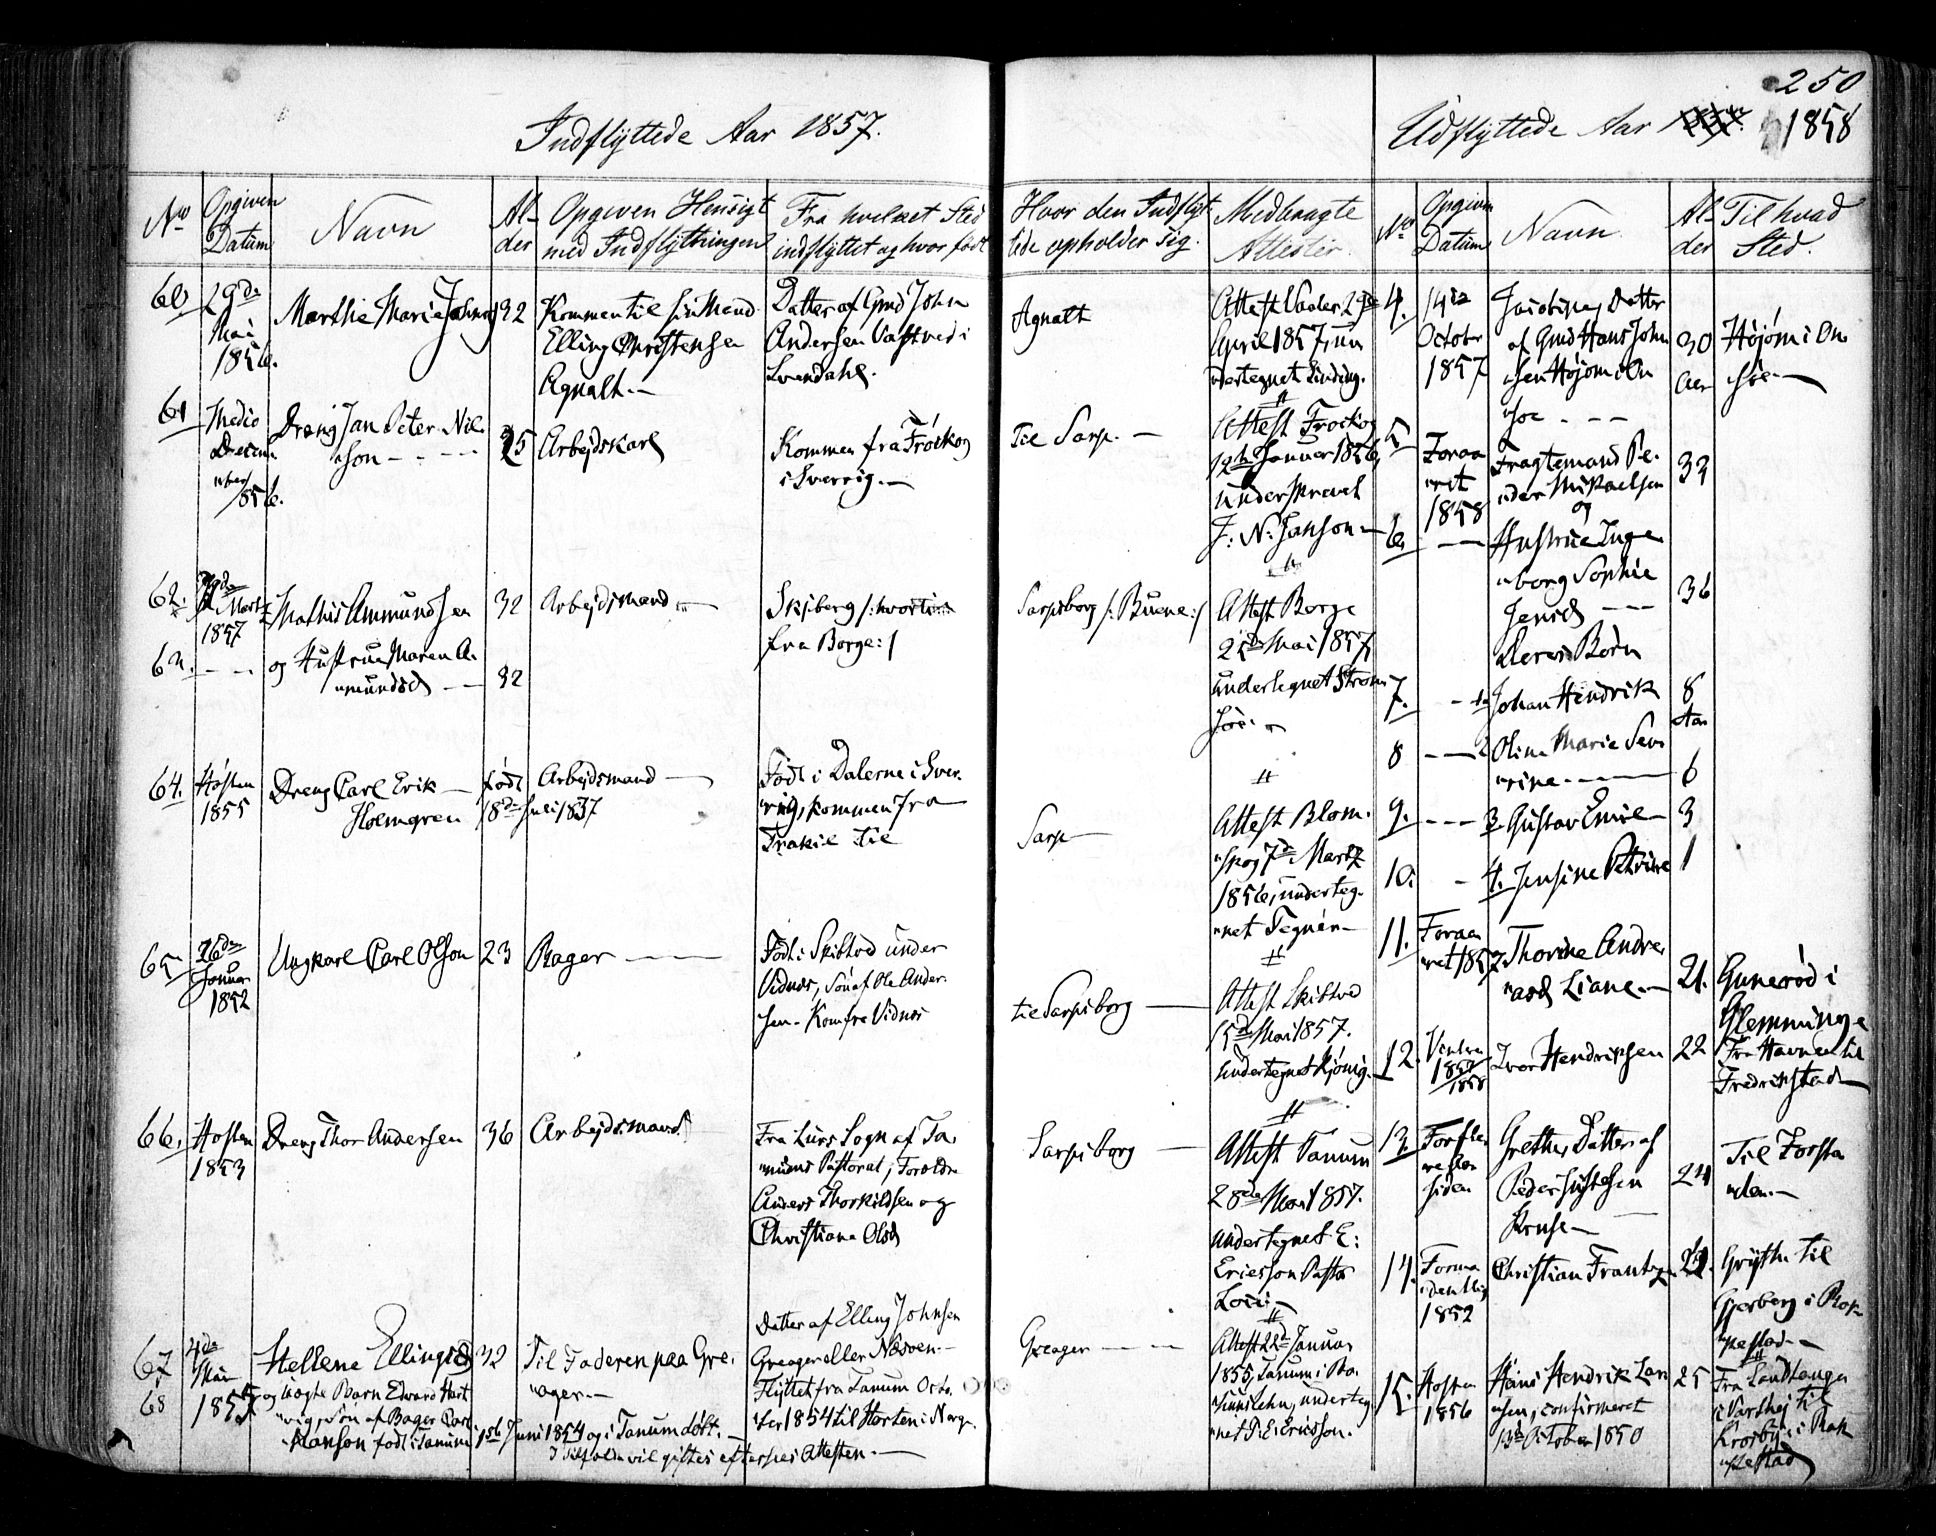 250
Indflyttede Aar 1857.
Udflyttede Aar 1858
No
Opgiven Datum
Navn
Alder
Opgiven Hensigt
med Indflytningen
Fra hvilket Sted
indflyttet og hvor født
Hvor den Indflyt-
tede opholder sig.
Medbragte
Attester.
No
Opgiven Datum
Navn
Alder
Til hvad
Sted.
60
29de
Mai
1856.
Marthe Marie Johns
32
Kommen til sin Mand
Elling Christensen
Agnalt.—
Datter af Gmd John
Andersen i
Svendahl.
Agnalt
Attest Vaaler 29de
April 1857, un-
dertegnet Linding.
61
Medio
Decem-
ber
1856.
Dreng Jan Peter Nil-
son - - - -
25
Arbejdskarl
Kommen fra Fröskog
i Sverrig.—
Til Sarp. —
Attest Fröskog
12te Januar 1856,
underskrevet
J: N: Janson—
62.
Marts
1857
Mathis Ammundsen
32
Arbejdsmand —
Skjeberg /: hvortil
fra Borge :/
Sarpsborg /: Buene :/
Attest Borge
25de Mai 1857,
undertegnet Strøm
søe.
63. - - -
og Hustrue Maren A-
mundsd —
32
64.
Høsten
1855
Dreng Carl Erik —
Holmgren
født
18de Juli 1837
Arbejdsmand —
Født i Dalerne i Sver-
rig, kommen fra
til
Sarp —
Attest Blom-
skog 7de Marts
1856, underteg-
net Tegnér—
65
26de
Januar
1852
Ungkarl Carl Olson
23
Bager — —
Født i Skibtved under
Vidnes, Søn af Ole Ander-
sen - Kom fra Vidnes
til Sarpsborg —
Attest Skibtved
15de Mai 1857.
undertegnet Kjönig.
66.
Høsten
1853
Dreng Thor Andersen
36
Arbejdsmand
Fra Lurs Sogn af Ta-
nums Pastorat, Forældre
Anders Thorkildsen og
Christiana Olsd
Sarpsborg —
Attest Tanum
28de Mai 1857.
undertegnet E:
Ericsson Pastor
Loci—
67
68
4de
Mai
1855
Hellene Ellingsd
og uægte Barn Edward Hart-
vig, Søn af Bager Carl
Hanson født i Tanum 1ste Juni 1854 og i Tanum døbt. —
I Tilfælde vil giftes eftersees Attesten. —
32
Til Faderen paa Gre-
ager.—
Datter af Elling Johnsen
Greager eller Næsven.—
Flyttet fra Tanum Octo-
ber 1854 til Horten i Norge.
Greager — —
Attest 22de Januar
1855, Tanum i Ba-
huuslehn, underteg-
net T: E: Ericsson.
4.
14de
October
1857
Jacobine, Datter
af Gmd Hans John-
sen Højom i On-
søe - - -
30
Aar
Højom i On-
søe.—
5
Foraa-
ret
1858
Fragtemand Pe-
der Mikaelsen
og
33
6. —
Hustrue Inge-
borg Sophie
Jensd - -
36
Deres Børn
7.
1.
Johan Hendrik
8
Aar
8 — 2
Oline Marie Sev-
rine - — —
6
9. - - - 3
Gustav Emil —
3
10. - 4.
Jensine Petrine
1
11.
Foraa-
ret 1857
Thorine Andre-
asd Liane.—
21.
Gunerød i
Glemminge
12.
Vintren
1857/1858
Iver Hendriksen
22
Fra Havnen til
Fredrikstad —
13.
siden
Grethe, Datter af
Peder
Kruse—
24
Til Torsta-
14.
1852
Christian Frantzen
til
i Rak-
kestad.—
15.
Høsten
1856
Hans Hendrik Lar-
sen, confirmeret
13de October 1850
25
Fra Landtangen
i Varthej til
Krosby i Rak-
kestad